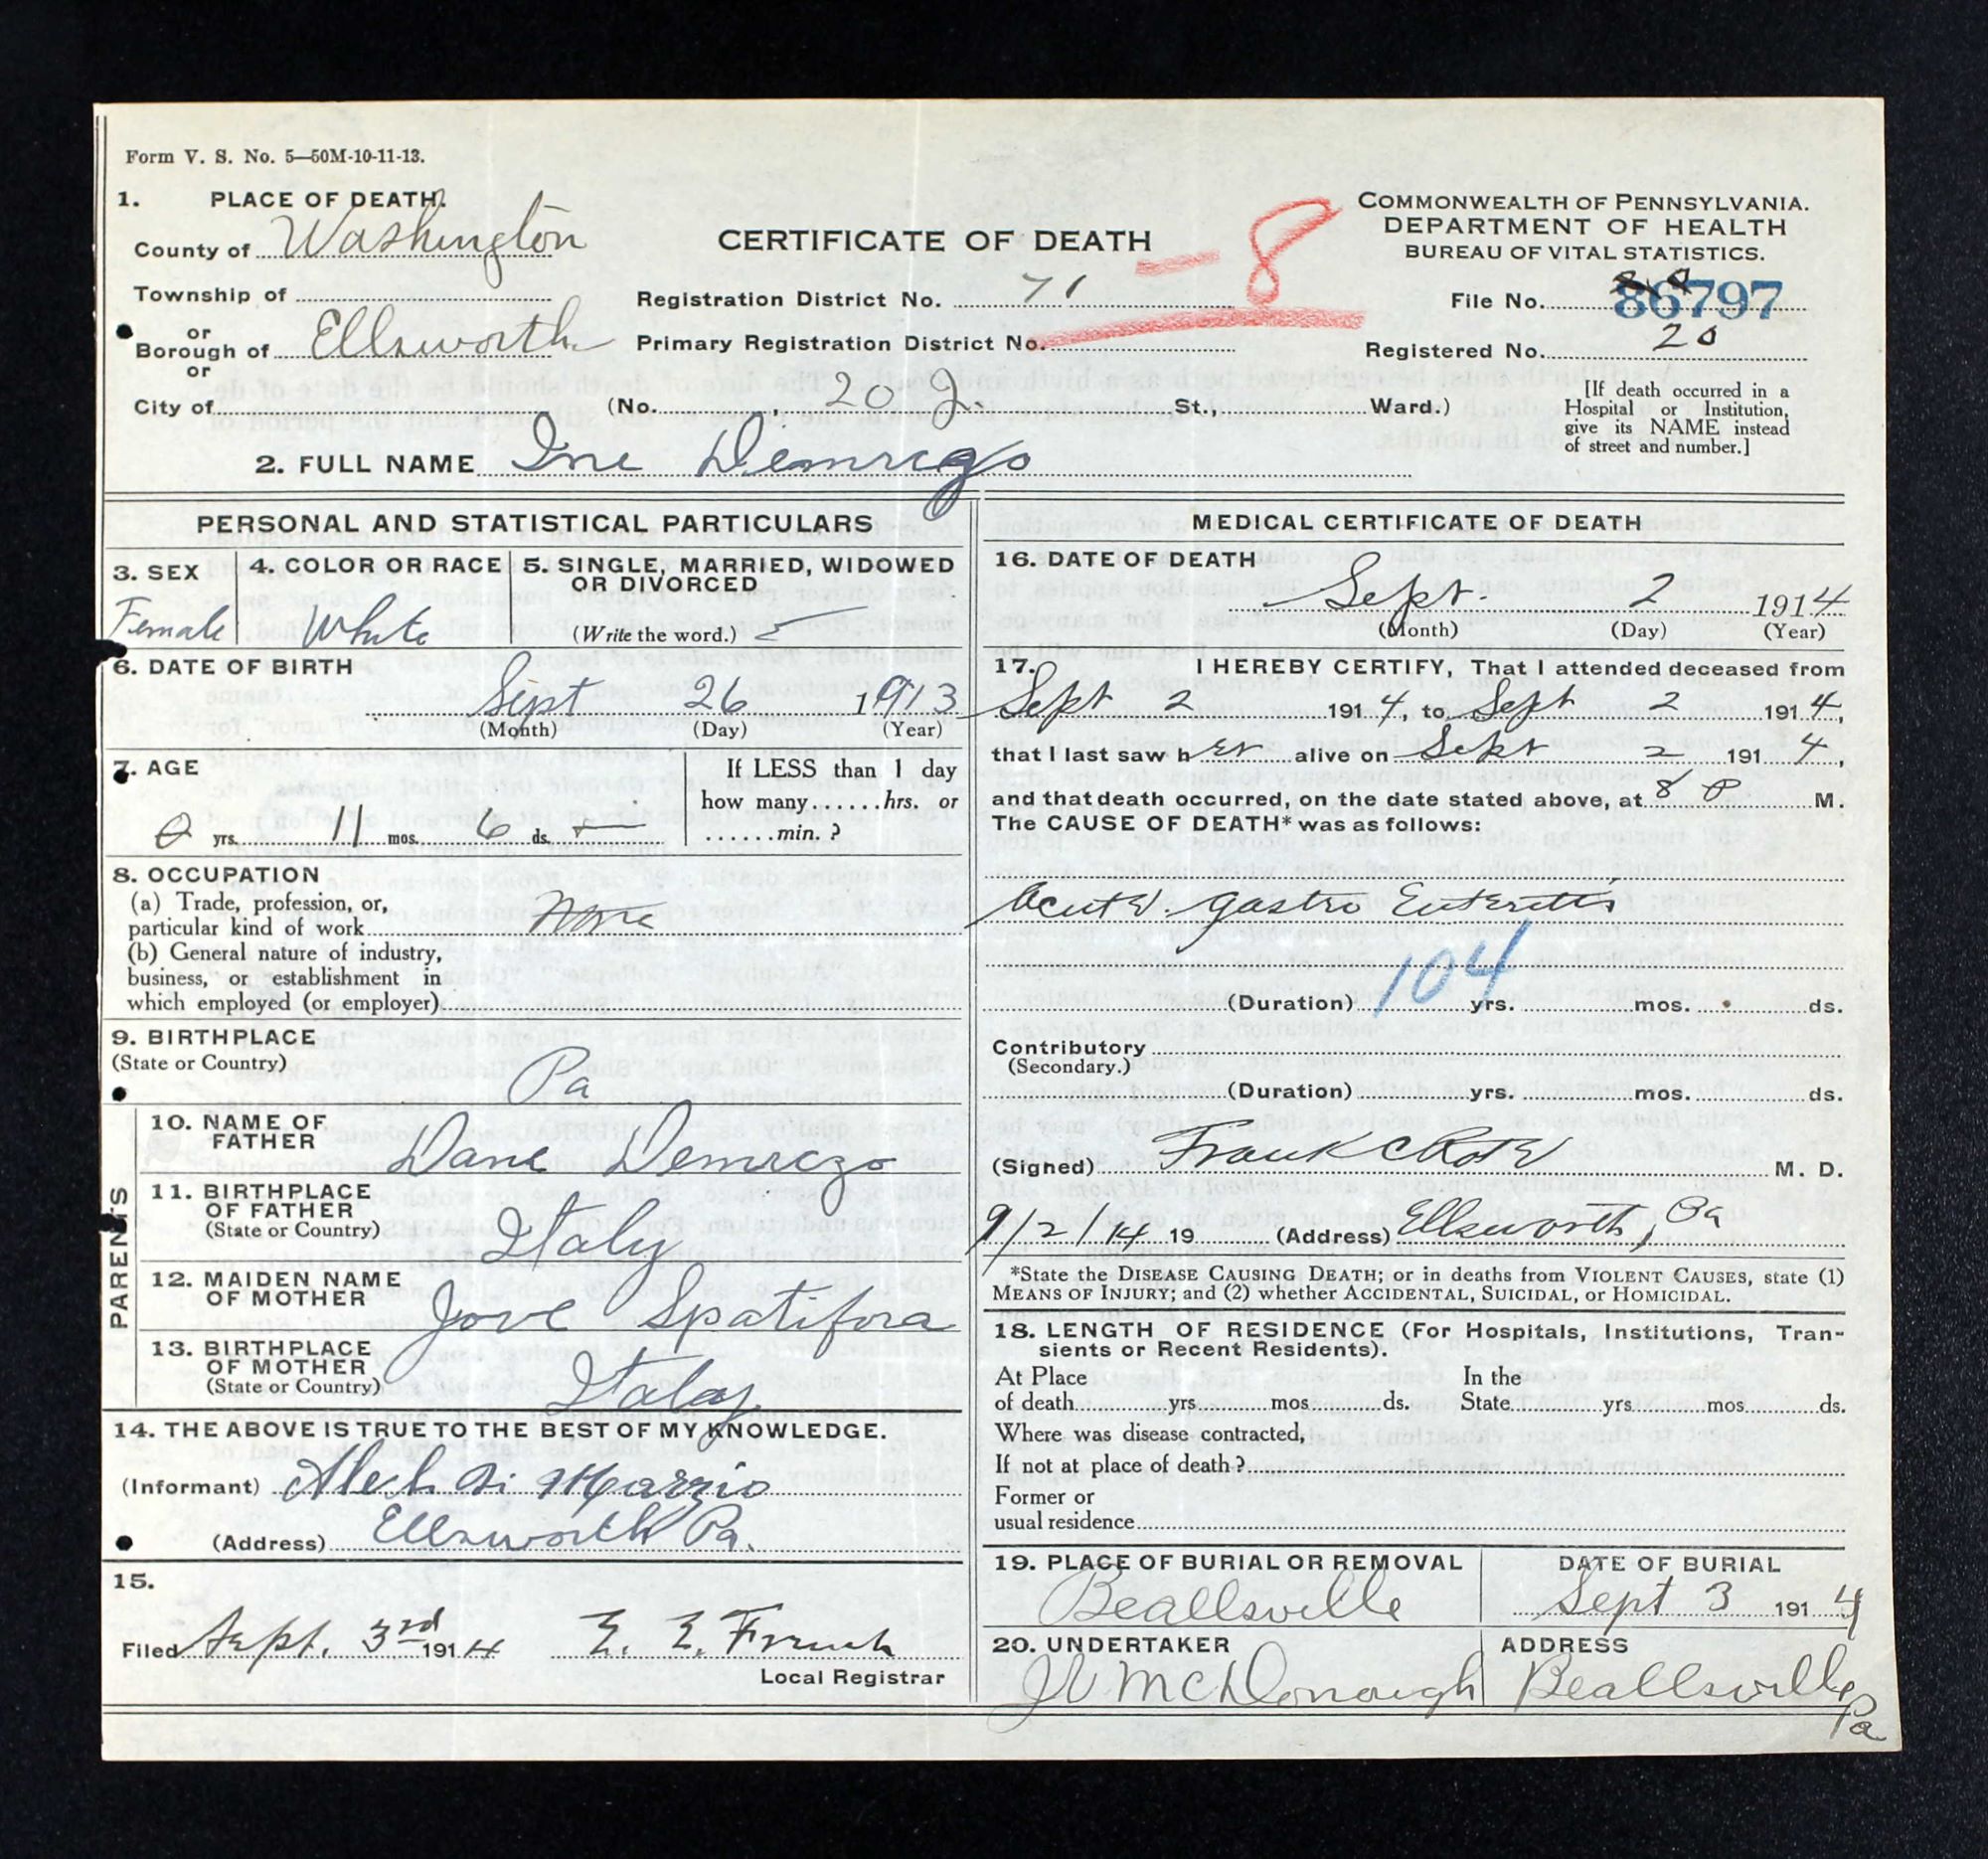 Form V. S. No. 5—50M-10-11-13.
1. PLACE OF DEATH.
County of Washington
Township of
or
Borough of Ellsworth
or
City of
CERTIFICATE OF DEATH
— 8
Registration District No. 71
Primary Registration District No.
(No. , 202 St., Ward.)
COMMONWEALTH OF PENNSYLVANIA.
DEPARTMENT OF HEALTH
BUREAU OF VITAL STATISTICS.
File No. 86797
Registered No. 20
[If death occurred in a
Hospital or Institution,
give its NAME instead
of street and number.]
2. FULL NAME Ine
PERSONAL AND STATISTICAL PARTICULARS
3. SEX
Female
4. COLOR OR RACE
White
5. SINGLE, MARRIED, WIDOWED
OR DIVORCED
(Write the word.) S
6. DATE OF BIRTH
Sept 26 1913
(Month) (Day) (Year)
7. AGE
0 yrs. 11 mos. 6 ds.
If LESS than 1 day
how many......hrs. or
......min. ?
8. OCCUPATION
(a) Trade, profession, or,
particular kind of work None
(b) General nature of industry,
business, or establishment in
which employed (or employer)
9. BIRTHPLACE
(State or Country)
Pa
PARENTS
10. NAME OF
FATHER
11. BIRTHPLACE
OF FATHER
(State or Country)
Italy
12. MAIDEN NAME
OF MOTHER
Jove Spatifora
13. BIRTHPLACE
OF MOTHER
(State or Country)
Italy
14. THE ABOVE IS TRUE TO THE BEST OF MY KNOWLEDGE.
(Informant) Alech Di Marzio
(Address) Ellsworth Pa.
15.
Filed Sept. 3rd 1914 E. E. French
Local Registrar
MEDICAL CERTIFICATE OF DEATH
16. DATE OF DEATH
Sept. 2 1914
(Month) (Day) (Year)
17. I HEREBY CERTIFY, That I attended deceased from
Sept 2 1914, to Sept 2 1914,
that I last saw her alive on Sept 2 1914,
and that death occurred, on the date stated above, at 8 P M.
The CAUSE OF DEATH* was as follows:
Acute Gastro Enteritis
104
(Duration) yrs. mos. ds.
Contributory
(Secondary.)
(Duration) yrs. mos. ds.
(Signed) Frank C M. D.
9/2/14 19 (Address) Ellsworth, Pa
*State the DISEASE CAUSING DEATH; or in deaths from VIOLENT CAUSES, state (1)
MEANS OF INJURY; and (2) whether ACCIDENTAL, SUICIDAL, or HOMICIDAL.
18. LENGTH OF RESIDENCE (For Hospitals, Institutions, Tran-
sients or Recent Residents).
At Place In the
of death yrs. mos. ds. State yrs. mos. ds.
Where was disease contracted,
If not at place of death?
Former or
usual residence
19. PLACE OF BURIAL OR REMOVAL
Beallsville
DATE OF BURIAL
Sept 3 1914
20. UNDERTAKER
JW McDonough
ADDRESS
Beallsville
Pa